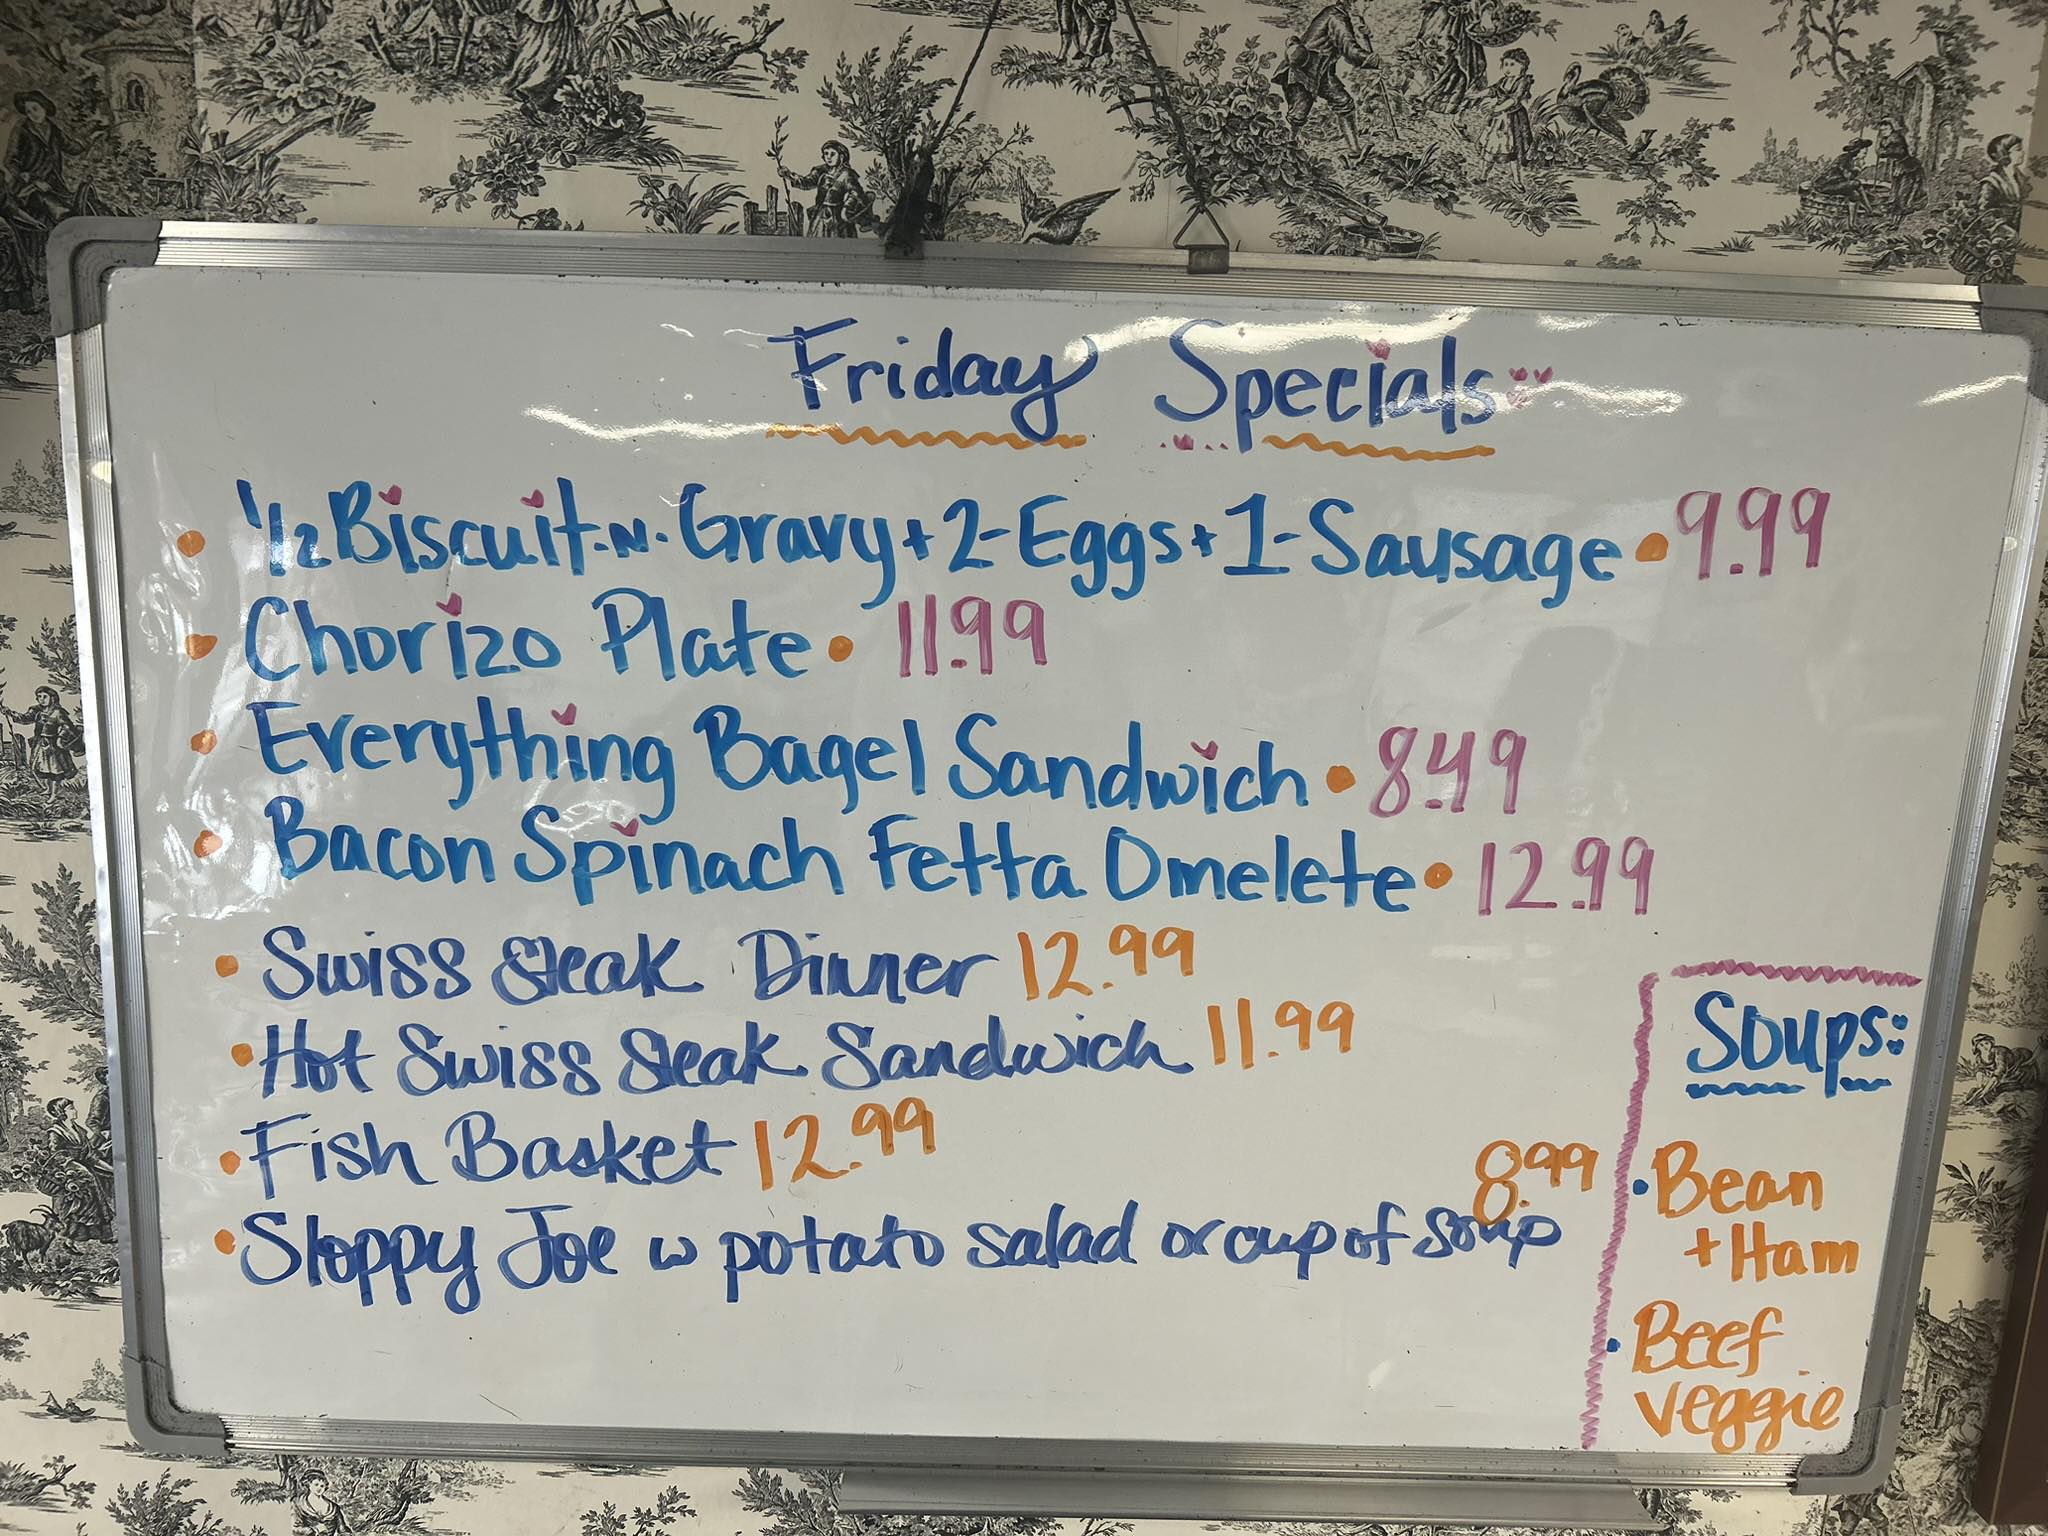 Friday Specials
• 1/2 Biscuit-N-Gravy + 2-Eggs + 1-Sausage • 9.99
• Chorizo Plate • 11.99
• Everything Bagel Sandwich • 8.49
• Bacon Spinach Fetta Omelete • 12.99
• Swiss Steak Dinner 12.99
• Hot Swiss Steak Sandwich 11.99
• Fish Basket 12.99
• Sloppy Joe w potato salad or cup of soup 8.99
Soups:
• Bean
+ Ham
• Beef
veggie